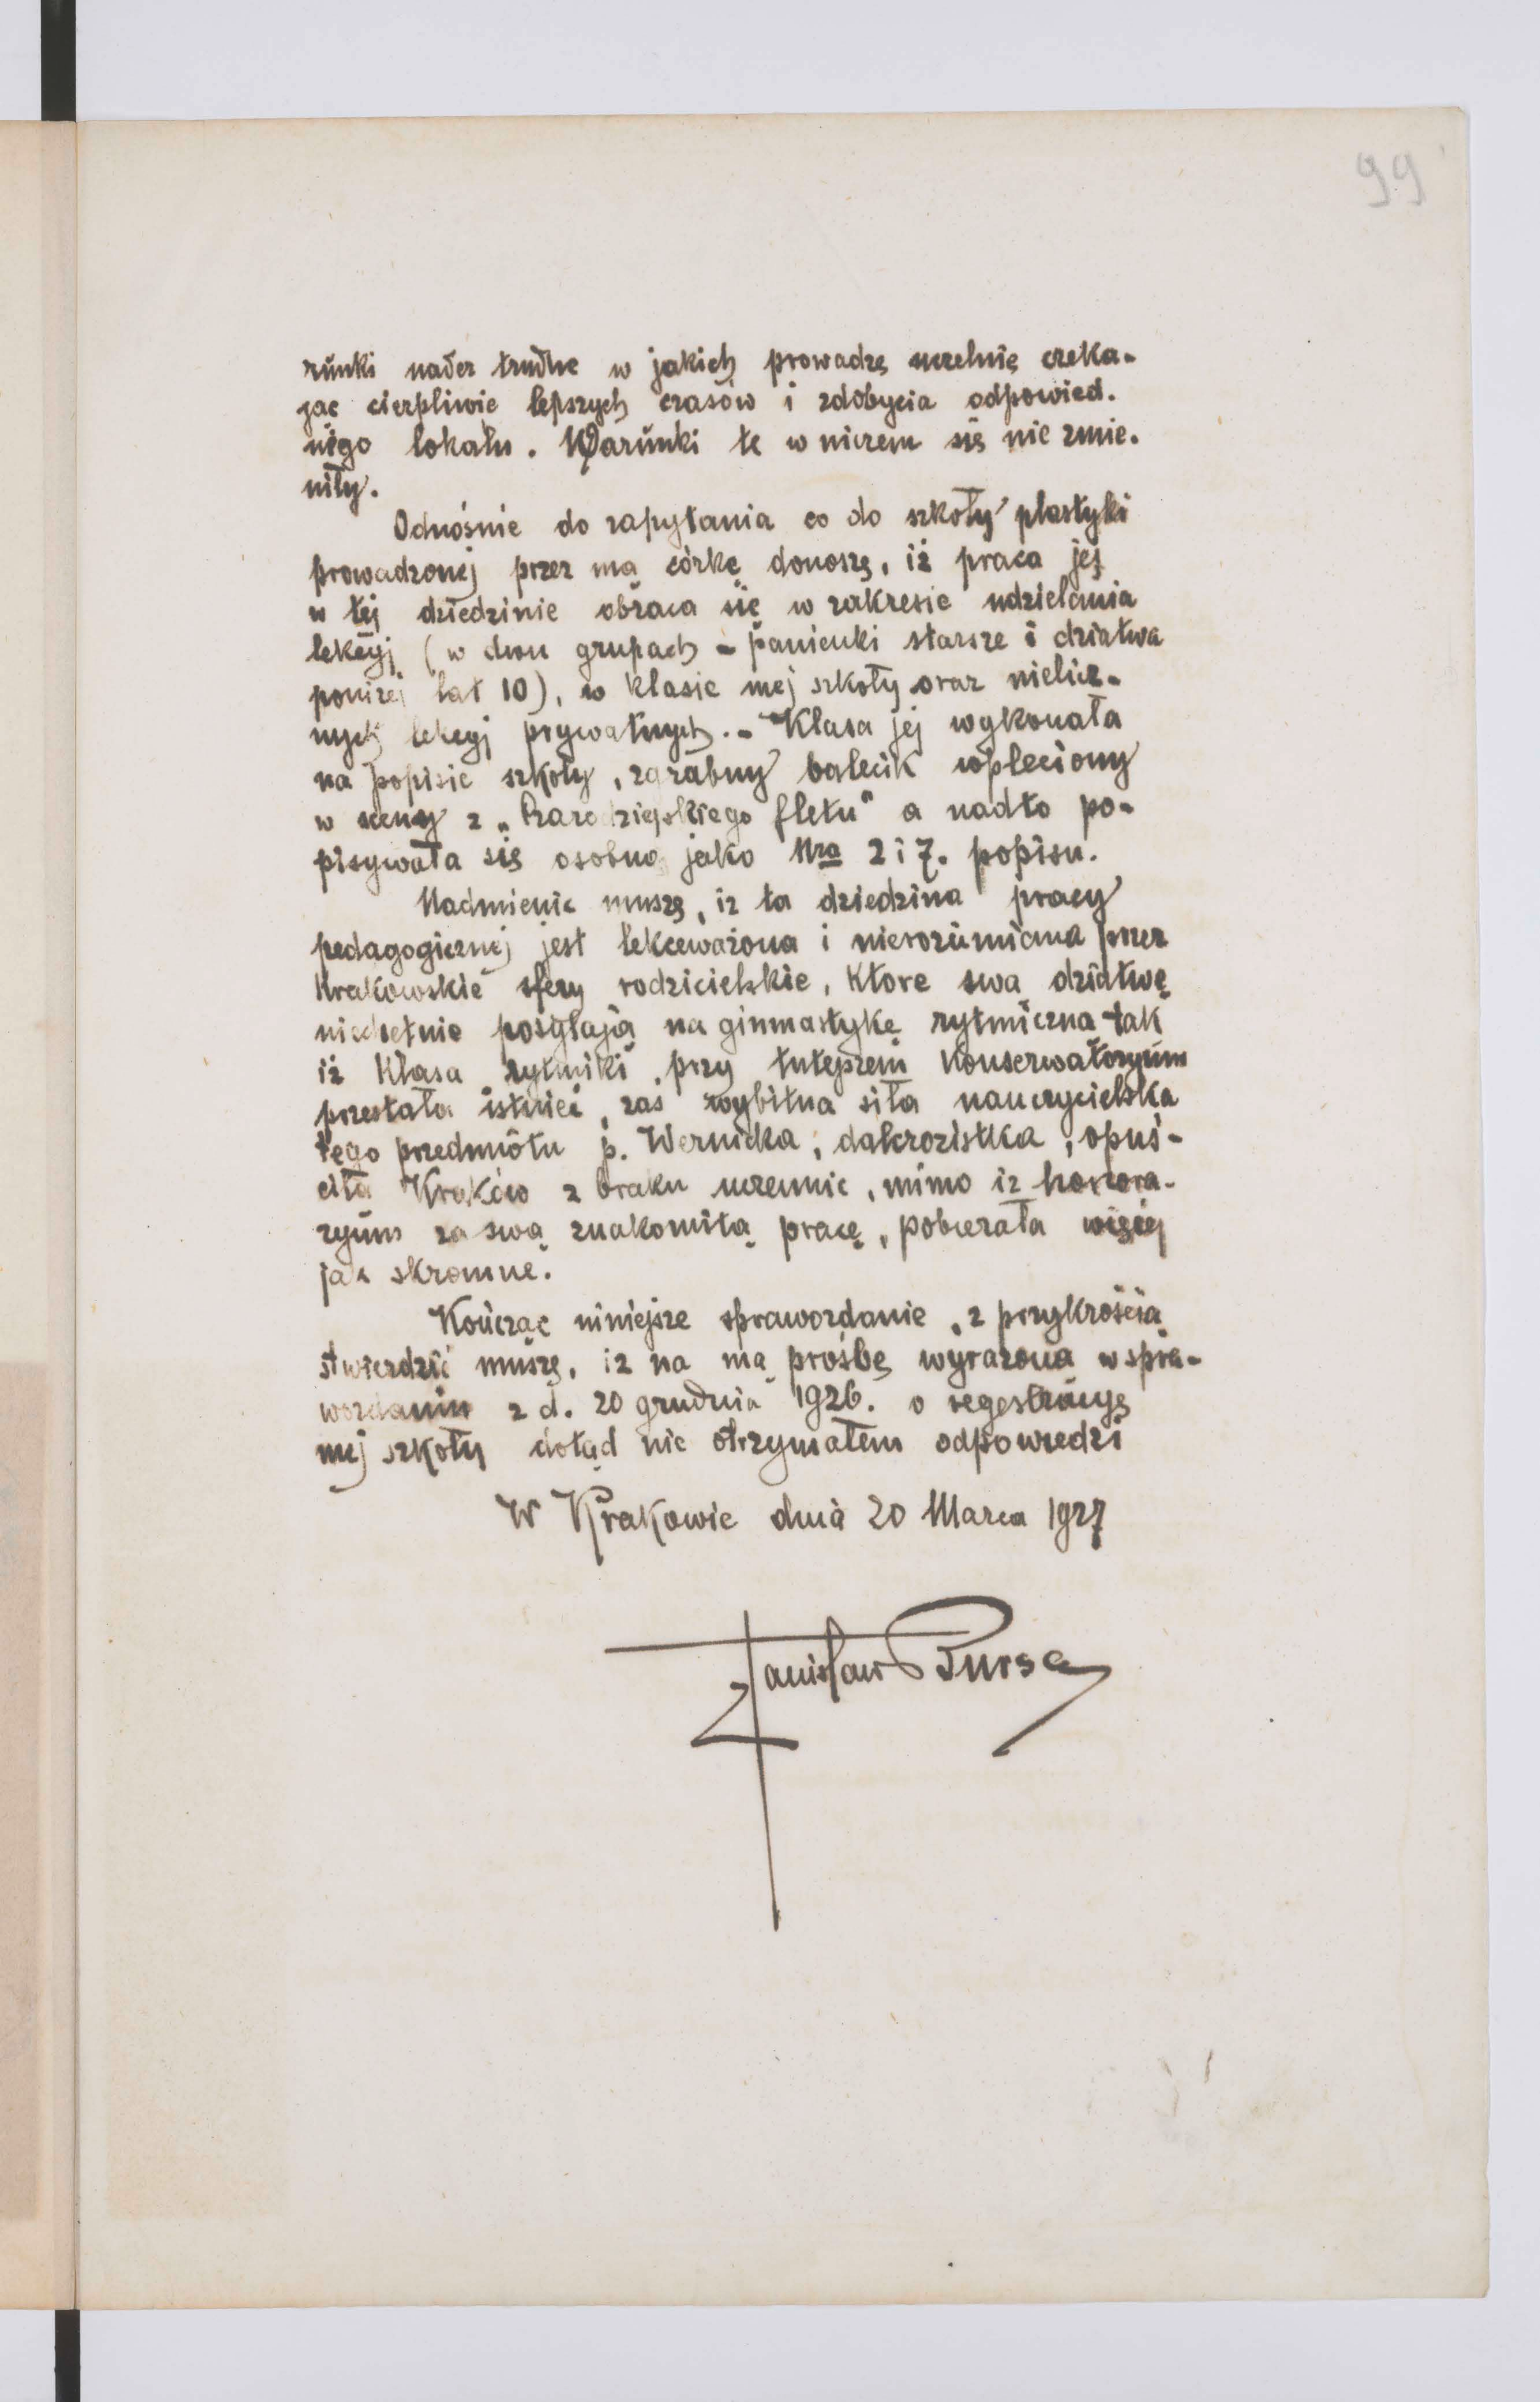 99
runki nader trudne w jakich prowadzę uczelnię czeka-
jąc cierpliwie lepszych czasów i zdobycia odpowied-
niego lokalu. Warunki te w niczem się nie zmie-
niły.
Odnośnie do zapytania co do szkoły plastyki
prowadzonej przez mą córkę donoszę, iż praca jej
w tej dziedzinie obraca się w zakresie udzielania
lekcyj (w dwu grupach - panienki starsze i dziatwa
poniżej lat 10), w klasie mej szkoły oraz nielicz-
nych lekcyj prywatnych. - Klasa jej wykonała
na popisie szkoły, zgrabny balecik wpleciony
w sceny z „Czarodziejskiego fletu" a nadto po-
pisywała się osobno jako Nra 2 i 7. popisu.
Nadmienić muszę, iż ta dziedzina pracy
pedagogicznej jest lekceważona i nierozumiana przez
Krakowskie sfery rodzicielskie, które swą dziatwę
niechętnie posyłają na ginmastykę rytmiczną tak
iż klasa rytmiki przy tutejszem Konserwatoryum
przestała istnieć, zaś wybitna siła nauczycielska
tego przedmiotu p. Wernicka, dalcrozistka, opuś-
ciła Kraków z braku uczennic, mimo iż honora-
ryum za swą znakomitą pracę, pobierała więcej
jak skromne.
Kończąc niniejsze sprawozdanie, z przykrością
stwierdzić muszę, iż na mą prośbę wyrażoną w spra-
wozdaniu z d. 20 grudnia 1926. o regestracyę
mej szkoły dotąd nie otrzymałem odpowiedzi
W Krakowie dnia 20 Marca 1927
Stanisław Bursa